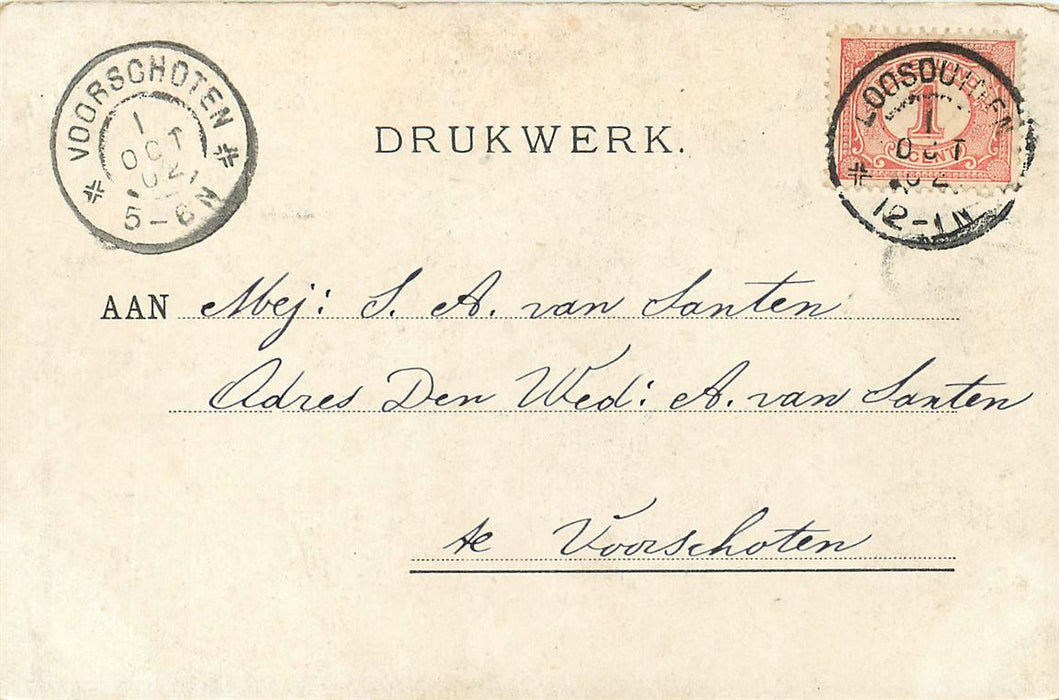 VOORSCHOTEN
1
OCT
02
5-6N
DRUKWERK.
1
CENT
LOOSDUINEN
1
OCT
02
12-1N
AAN Mej: S. A. van Santen
Adres Den Wed: A. van Santen
te Voorschoten